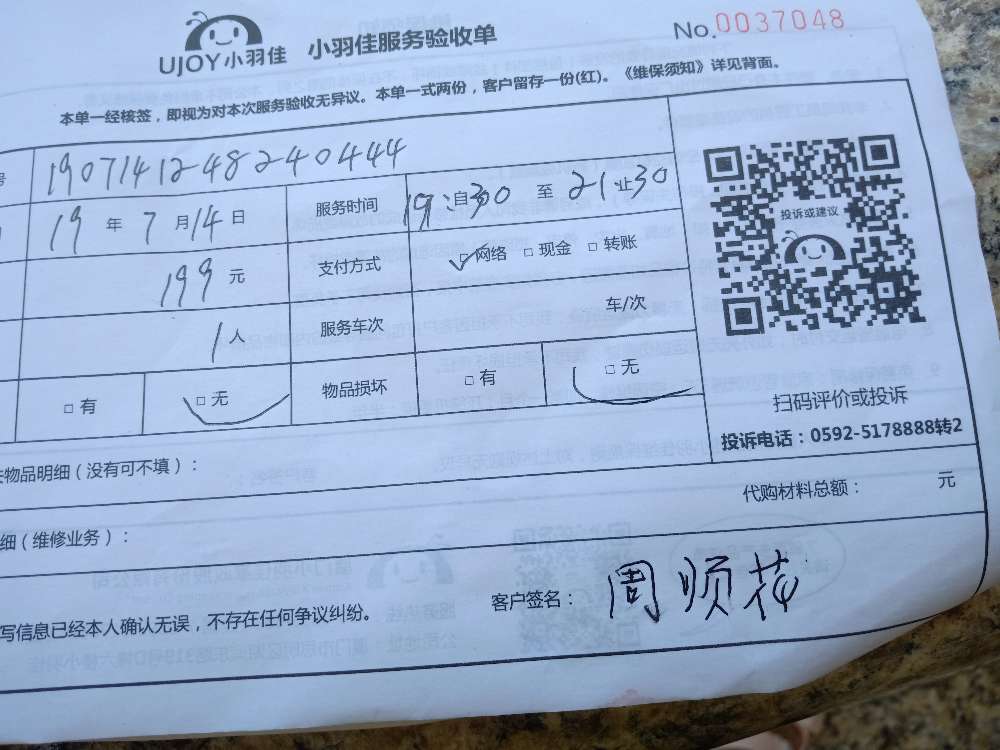 UJOY小羽佳 小羽佳服务验收单 No.0037048
本单一经核签，即视为对本次服务验收无异议。本单一式两份，客户留存一份(红)。《维保须知》详见背面。
号 190714124824 0444
19 年 7 月 14 日 服务时间 19:自30 至 21:止30
199 元 支付方式 □网络 □现金 □转账
1 人 服务车次 车/次
□有 □无 物品损坏 □有 □无
投诉或建议
扫码评价或投诉
投诉电话：0592-5178888转2
物品明细（没有可不填）：
代购材料总额： 元
细（维修业务）：
写信息已经本人确认无误，不存在任何争议纠纷。 客户签名： 周顺花